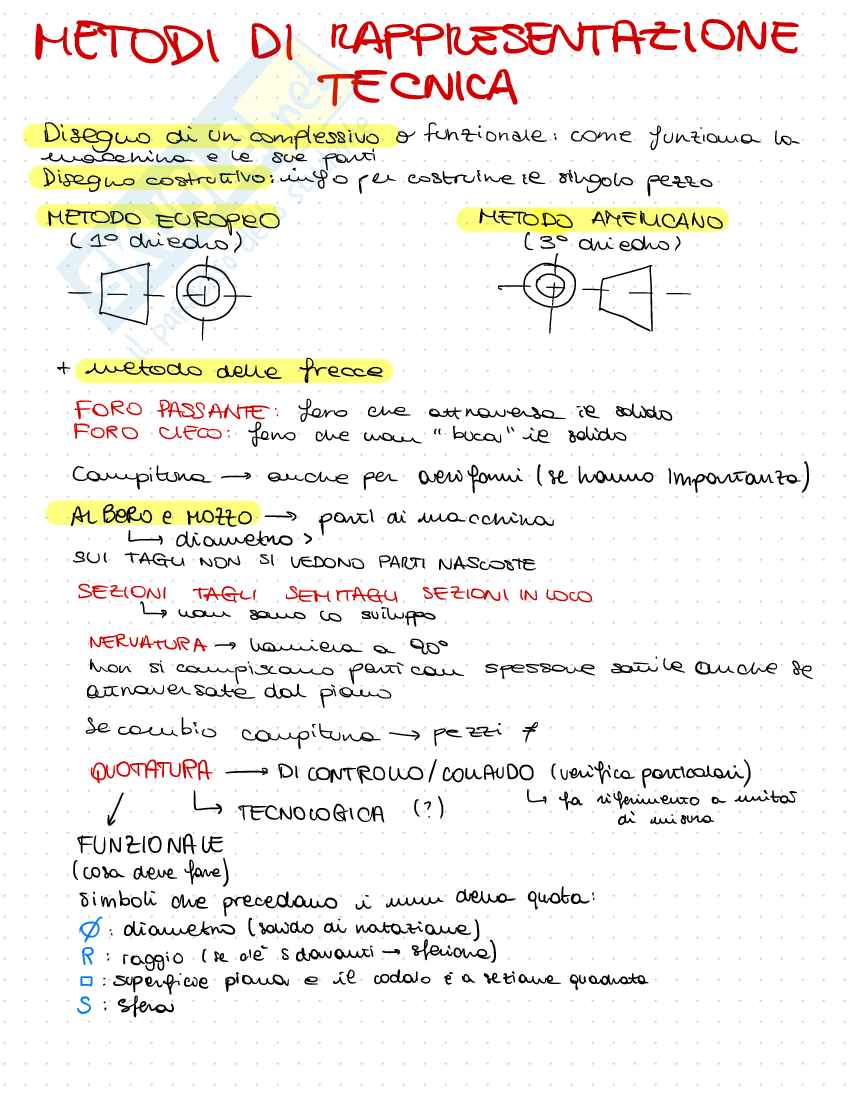 METODI DI RAPPRESENTAZIONE
TECNICA
Disegno di un complessivo o funzionale: come funziona la
macchina e le sue parti
Disegno costruttivo: info per costruire il singolo pezzo
METODO EUROPEO
METODO AMERICANO
(1° diedro)
(3° diedro)
+ metodo delle frecce
FORO PASSANTE: foro che attraversa il solido
FORO CIECO: foro che non "buca" il solido
Campitura → anche per aeriformi (se hanno importanza)
ALBERO e MOZZO → parti di macchina
↳ diametro >
SUI TAGLI NON SI VEDONO PARTI NASCOSTE
SEZIONI TAGLI SEMITAGLI SEZIONI IN LOCO
↳ non sono lo sviluppo
NERVATURA → lamiera a 90°
Non si campiscono parti con spessore sottile anche se
attraversate dal piano
Se cambio campitura → pezzi ≠
QUOTATURA → DI CONTROLLO/COLLAUDO (verifica particolari)
↳ fa riferimento a unità
di misura
↳ TECNOLOGICA (?)
FUNZIONALE
(cosa deve fare)
Simboli che precedano i num della quota:
Ø: diametro (solido di rotazione)
R: raggio (se c'è S davanti → sferione)
□: superficie piana e il codolo è a sezione quadrata
S: sfera